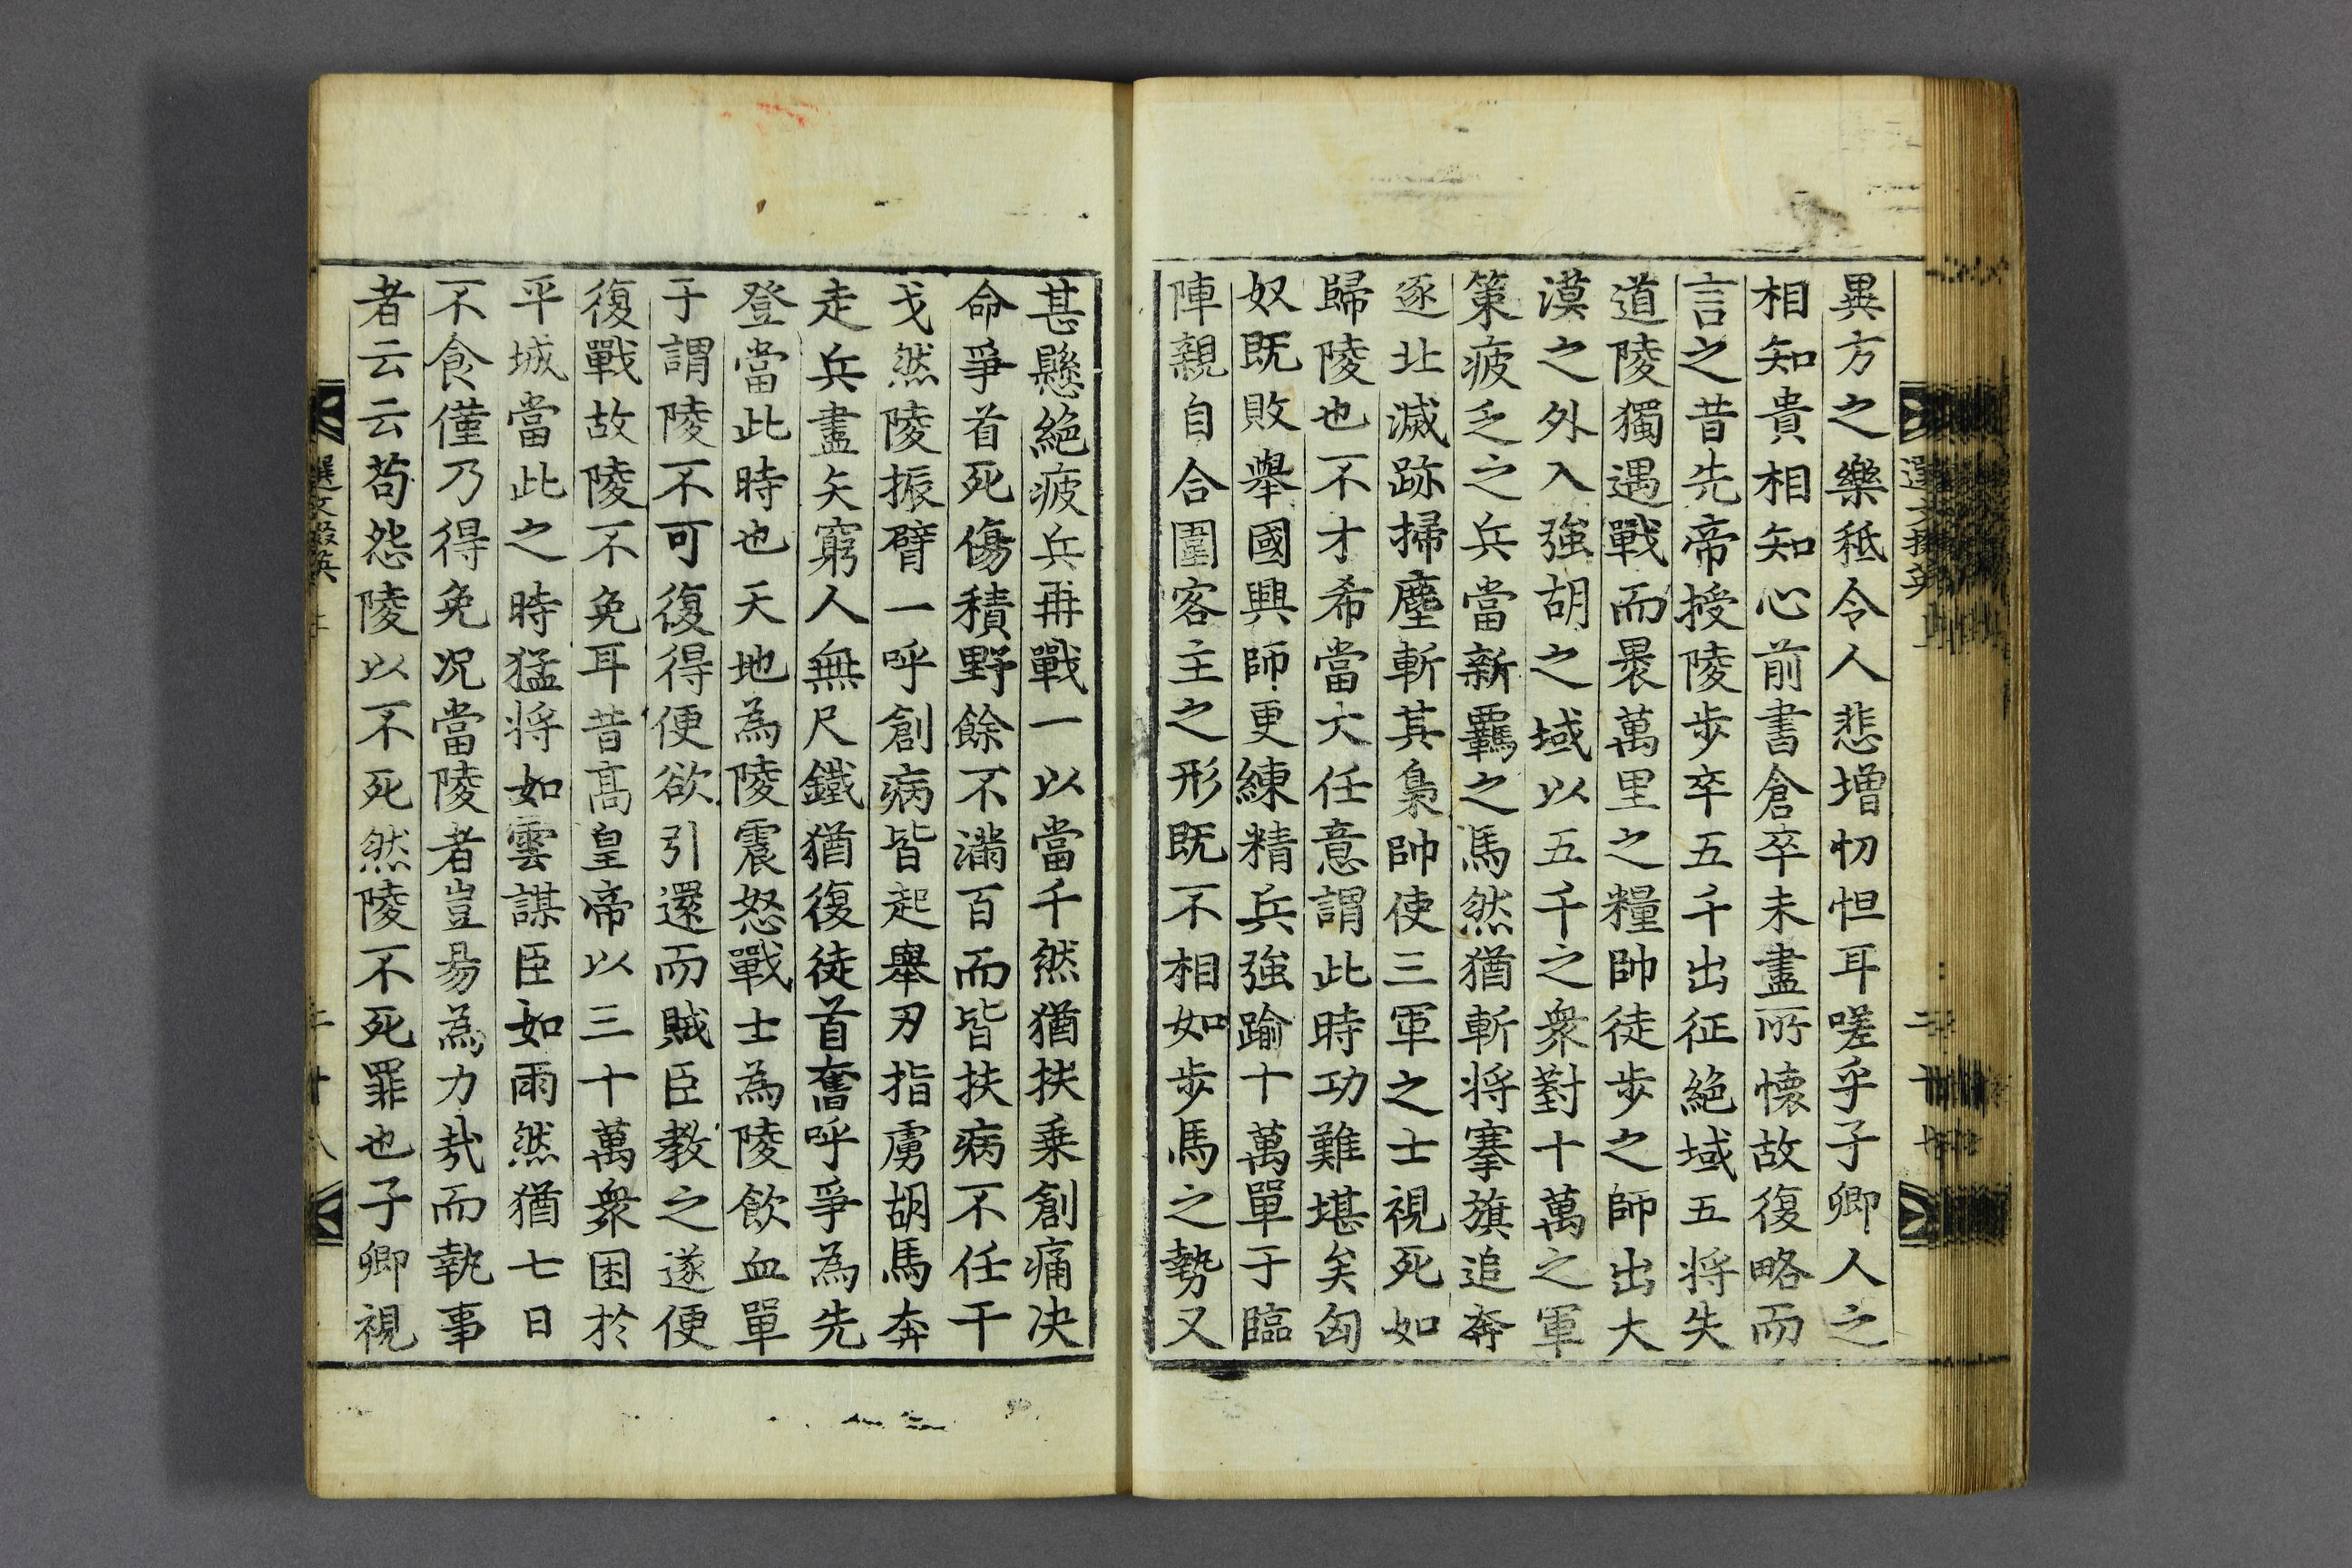 異方之樂秪令人悲增忉怛耳嗟乎子卿人之
相知貴相知心前書倉卒未盡所懷故復略而
言之昔先帝授陵步卒五千出征絕域五将失
道陵獨遇戰而褁萬里之糧帥徒步之師出大
漠之外入強胡之域以五千之衆對十萬之軍
策疲乏之兵當新羈之馬然猶斬将搴旗追奔
逐北滅跡掃塵斬其梟帥使三軍之士視死如
歸陵也不才希當大任意謂此時功難堪矣匈
奴既敗舉國興師更練精兵強踰十萬單于臨
陣親自合圍客主之形既不相如步馬之勢又
甚懸絕疲兵再戰一以當千然猶扶乗創痛决
命爭首死傷積野餘不滿百而皆扶病不任干
戈然陵振臂一呼創病皆起舉刃指虜胡馬奔
走兵盡矢窮人無尺鐵猶復徒首奮呼爭為先
登當此時也天地為陵震怒戰士為陵飲血單
于謂陵不可復得便欲引還而賊臣教之遂便
復戰故陵不免耳昔髙皇帝以三十萬衆困於
平城當此之時猛将如雲謀臣如雨然猶七日
不食僅乃得免况當陵者豈易為力㢤而執事
者云云苟怨陵以不死然陵不死罪也子卿視
選文掇英